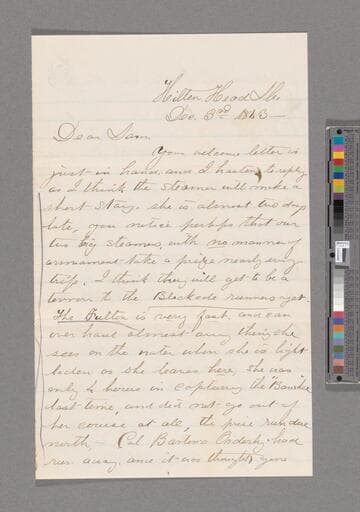 Hilton Head Isle
Dec. 3rd 1863
Dear Sam
Your welcome letter is
just in hand, and I hasten to reply
as I think the steamer will make a
short stay. she is almost two days
late, you notice perhaps that our
two big steamers, with no manner of
armament take a prize nearly every
trip. I think they will get to be a
terror to the Blockade runners yet.
The Fulton is very fast, and can
over haul almost any thing she
sees on the water when she is light
laden as she leaves here, she was
only 4 hours in capturing the "Banshee"
last time, and did not go out of
her course at all, the prize run due
north, - Col Bartons Orderly, had
run away, and it was thought, gone